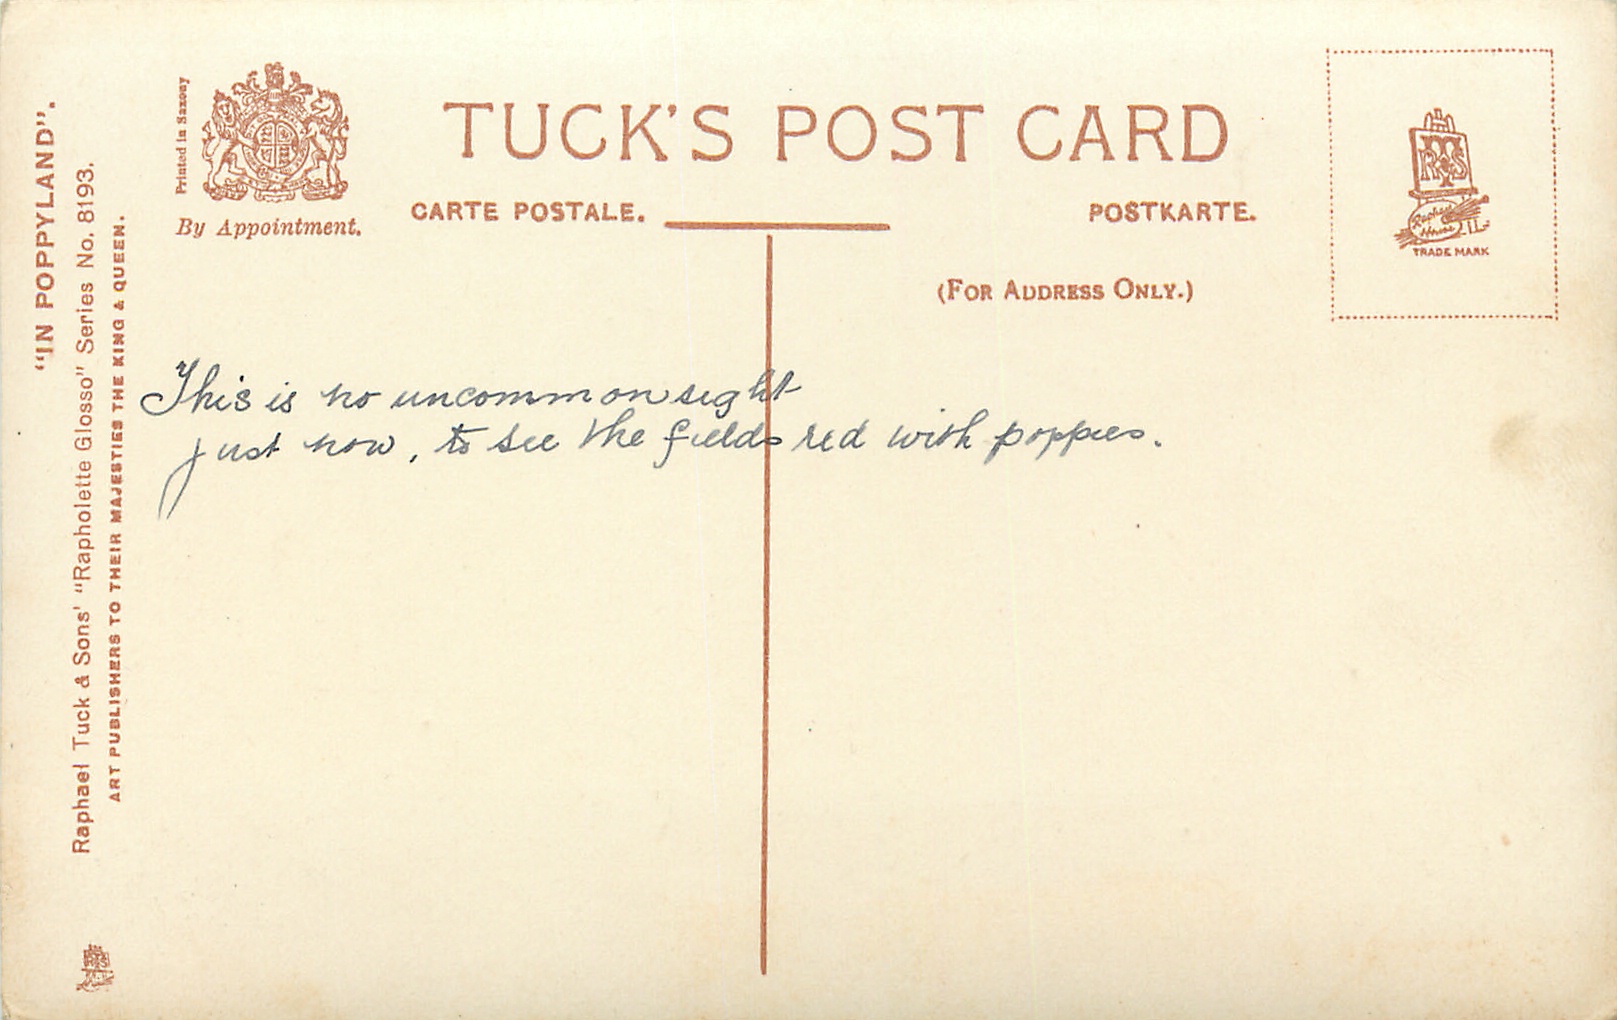 "IN POPPYLAND".
Raphael Tuck & Sons' "Rapholette Glosso" Series No. 8193.
ART PUBLISHERS TO THEIR MAJESTIES THE KING & QUEEN.
Printed in Saxony
By Appointment.
TUCK'S POST CARD
CARTE POSTALE.
POSTKARTE.
(FOR ADDRESS ONLY.)
RTS
Raphael
House
TRADE MARK
This is no uncommon sight
just now, to see the fields red with poppies.